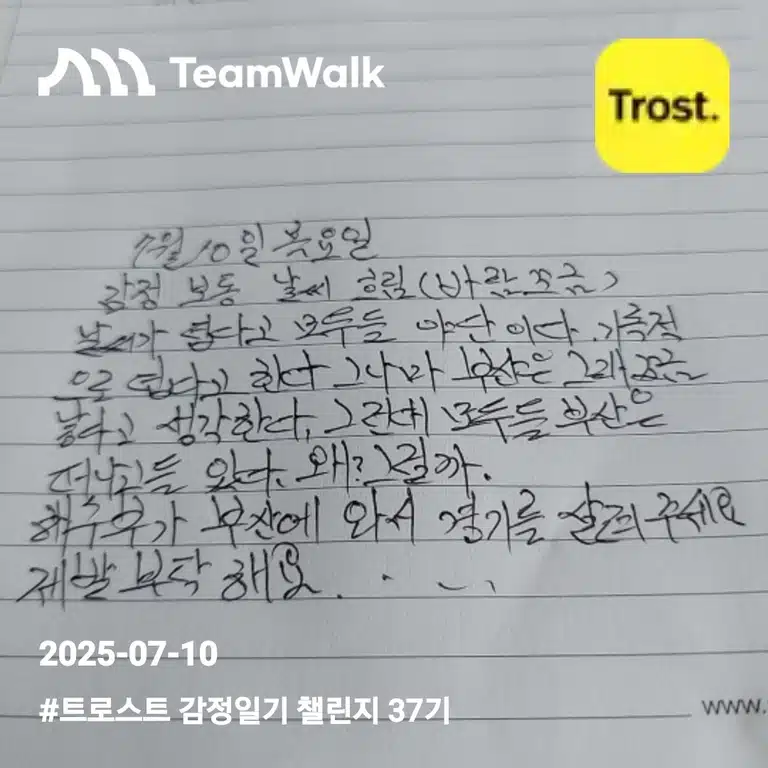 TeamWalk
Trost.
7월 10일 목요일
감정 보통 날씨 흐림(바람쪼금)
날씨가 덥다고 모두들 야단이다. 기록적
으로 덥다고 한다 그나마 부산은 그래 쪼금
낳다고 생각한다. 그런데 모두들 부산은
떠나고들 있다. 왜? 그럴까.
부산에 와서 경기를 살려주세요
제발 부탁해요.
2025-07-10
#트로스트 감정일기 챌린지 37기
www.